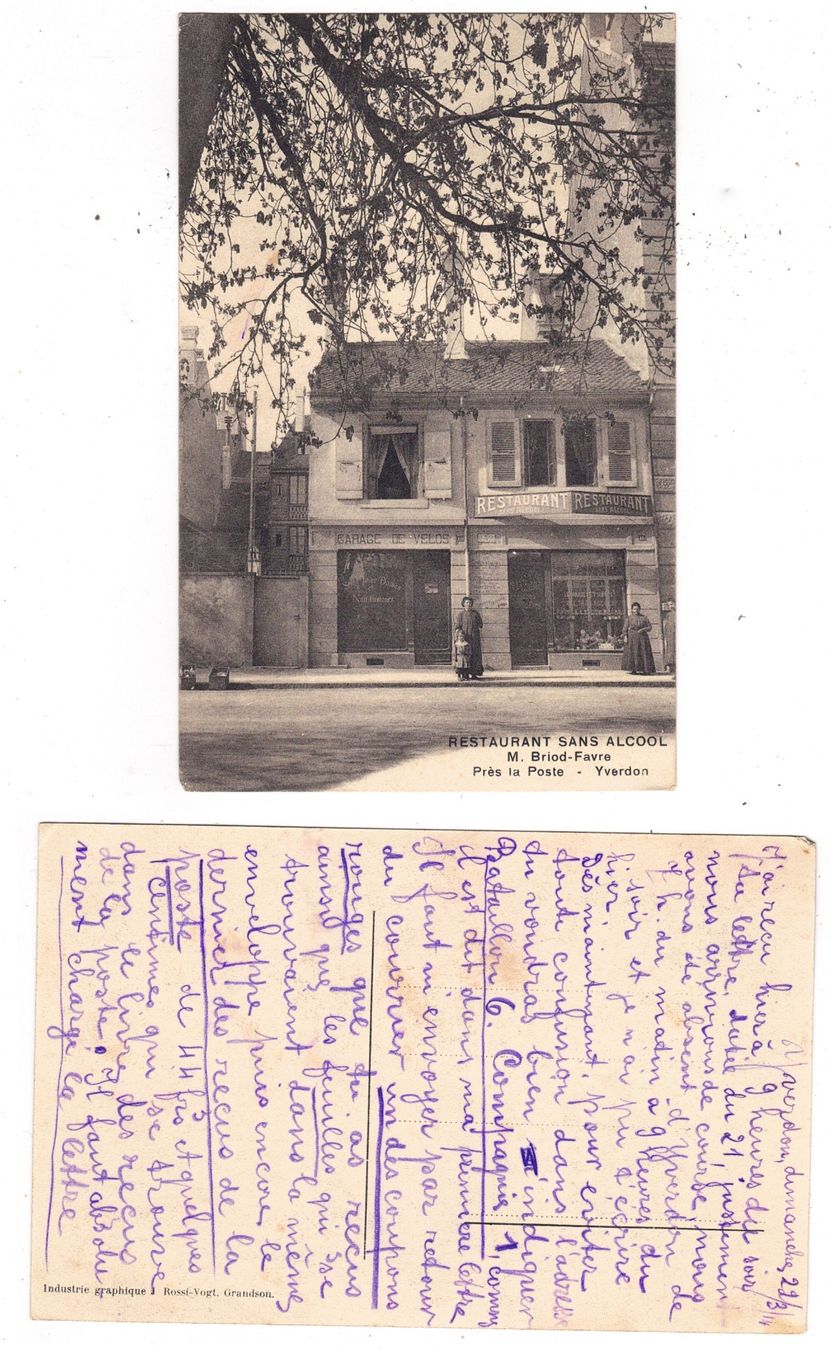 RESTAURANT
SANS ALCOOL
RESTAURANT
SANS ALCOOL
GARAGE DE VELOS
RESTAURANT SANS ALCOOL
M. Briod-Favre
Près la Poste - Yverdon
Yverdon, dimanche, 22/3/14
J'ai reçu hier à 9 heures du soir
ta lettre, datée du 21, justement
nous arrivions de course, nous
avons été absent d'Yverdon de
7 h. du matin à 9 heures du
soir et je n'ai pu t'écrire
hier.
Dès maintenant, pour éviter
toute confusion dans l'adresse
tu voudras bien indiquer
Bataillon 6. Compagnie 1 comme
il est dit dans ma première lettre
Il faut m'envoyer par retour
du courrier un des coupons
rouges que tu as reçus
ainsi que les feuilles qui se
trouvaient dans la même
enveloppe, puis encore le
dernier des reçus de la
poste de 44 frs et quelques
centimes qui se trouve
dans le livre des reçus
de la poste. Il faut absolu-
ment chargé la lettre
Industrie graphique Rossi-Vogt, Grandson.